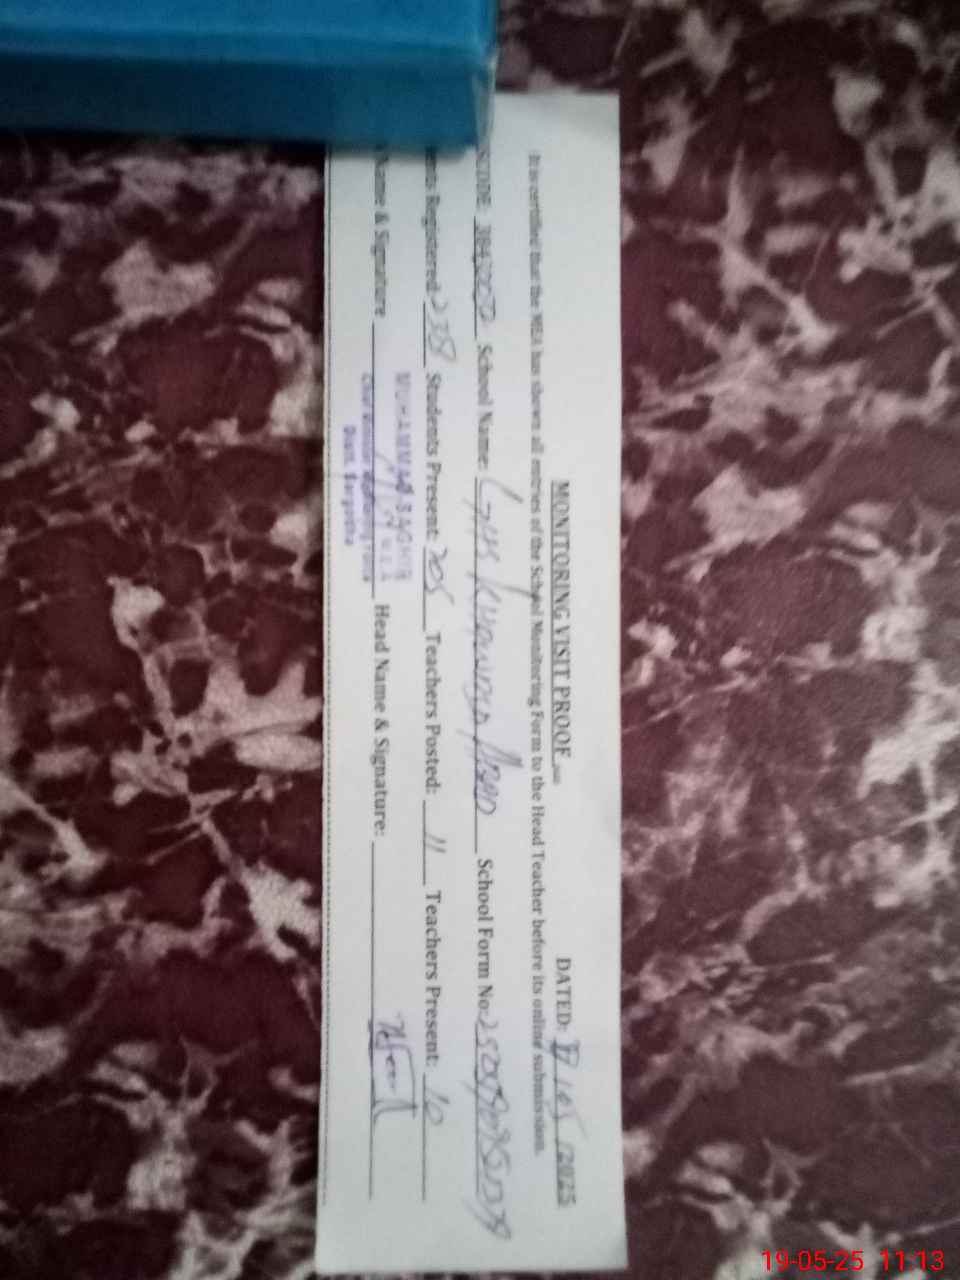 MONITORING VISIT PROOF
DATED: /05/2025
It is certified that the MEA has shown all entries of the School Monitoring Form to the Head Teacher before its online submission.
School Name: GHS KHURSHID ABAD School Form No:
Registered: 238 Students Present: 205 Teachers Posted: 11 Teachers Present: 10
Name & Signature Head Name & Signature:
MUHAMMAD SAGHIR
Distt. Sargodha
19-05-25 11:13